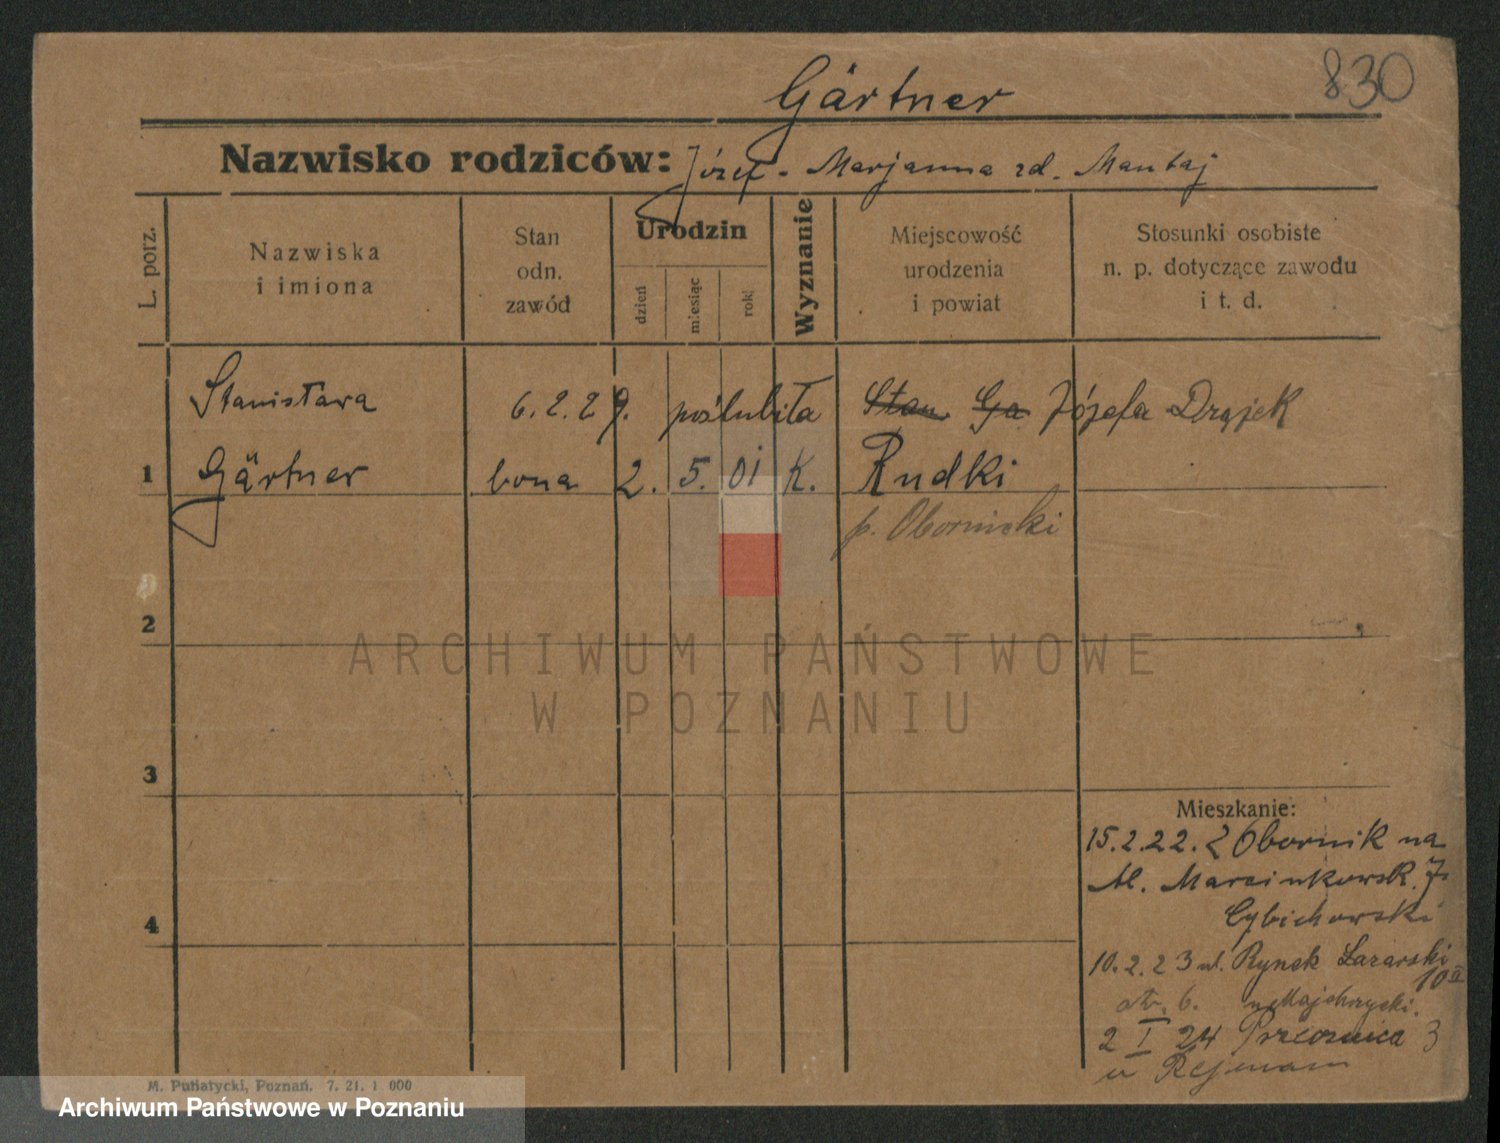 Gärtner
830
Nazwisko rodziców: Józef - Marjanna zd. Mantaj
L. porz.
Nazwiska
i imiona
Stan
odn.
zawód
Urodzin
dzień
miesiąc
rok
Wyznanie
Miejscowość
urodzenia
i powiat
Stosunki osobiste
n. p. dotyczące zawodu
i t. d.
Stanisława 6.2.29. poślubiła Stan. Ga Józefa Drążek
1 Gärtner bona 2. 5. 01 K. Rudki
p. Obornicki
2
ARCHIWUM PAŃSTWOWE
W POZNANIU
3
Mieszkanie:
15.2.22. z Obornik na
Al. Marcinkowsk. 7
Cybichowski
4
10.2.23 ul. Rynek Łazarski
10
6. u Majchrzycki.
2 I 24 Przecznica 3
u Rejmann
M. Putiatycki, Poznań. 7. 21. 1 000
Archiwum Państwowe w Poznaniu